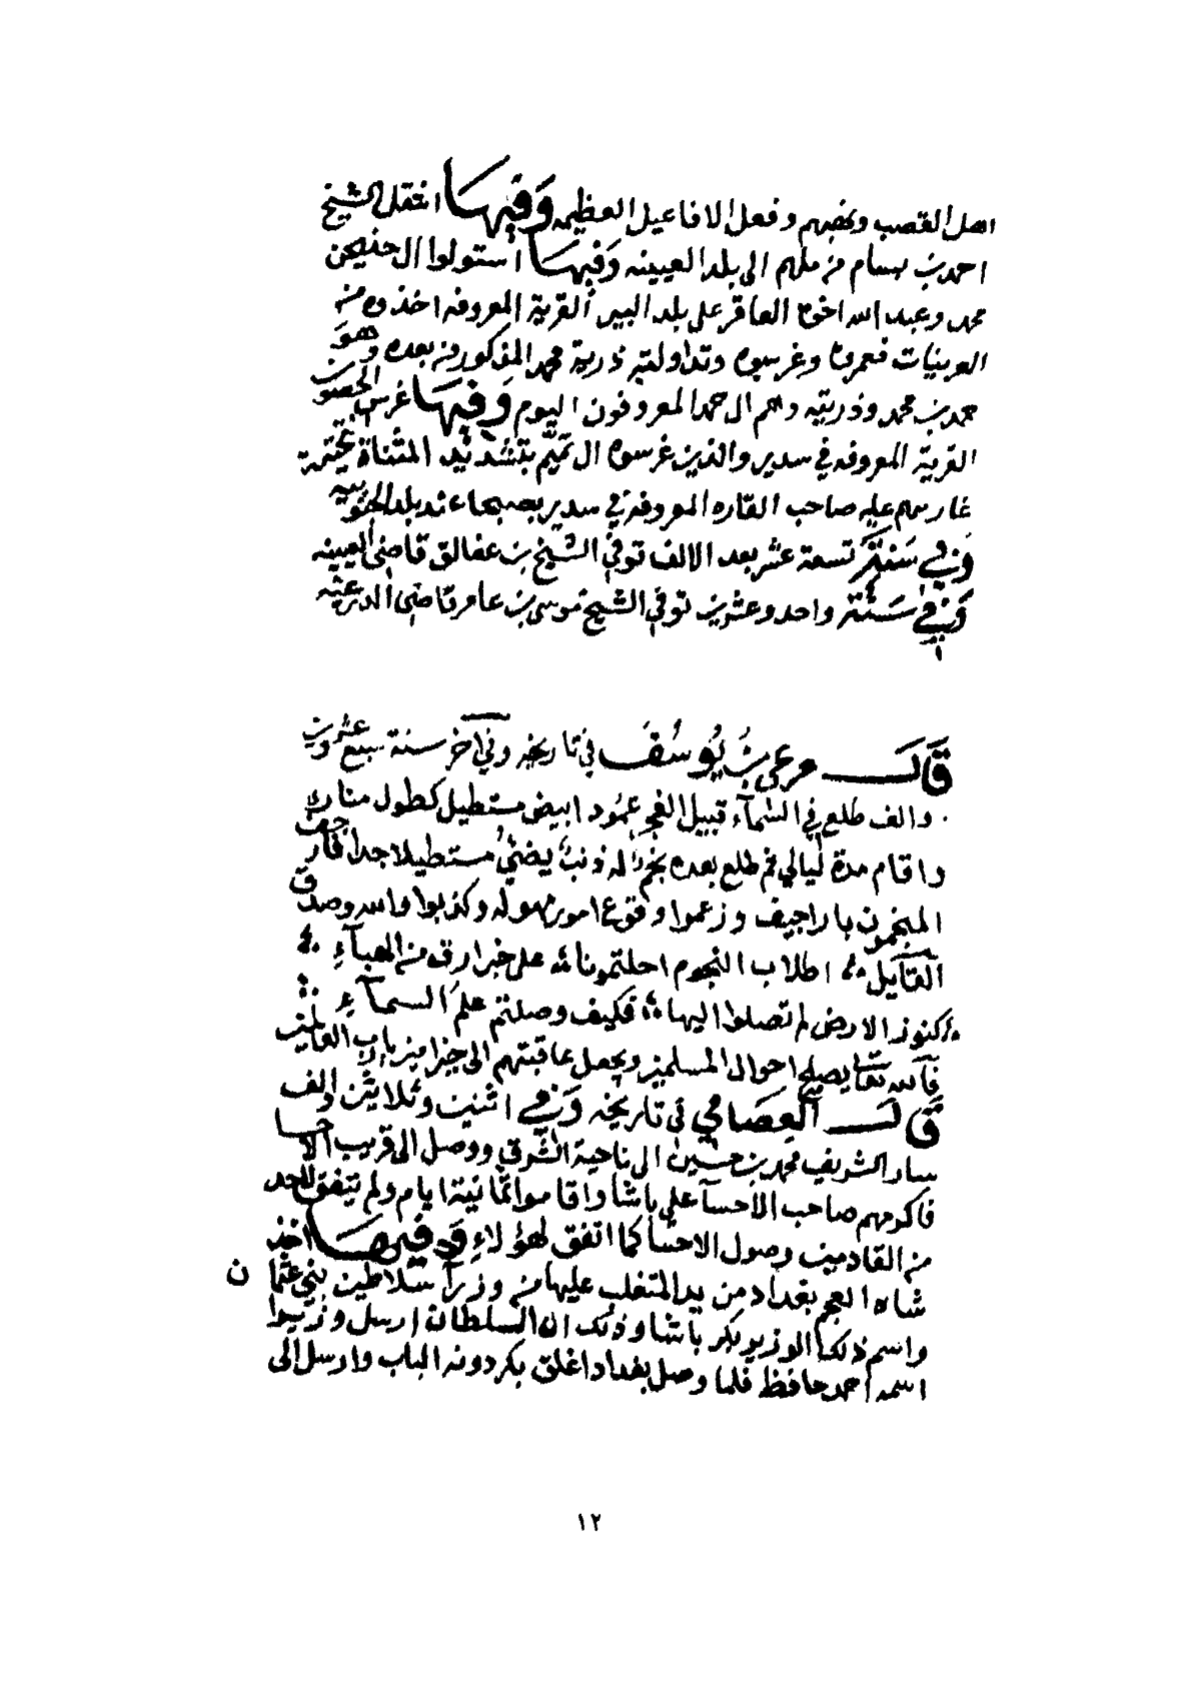 اهل القصب ونهبهم وفعل الافاعيل العظيمه وَفيهَا انتقل الشيخ
احمد بن بسام من ملهم الى بلد العيينه وَفيهَا استولوا ال حنيحن
محمد وعبد الله اخوه العاقر على بلد البير القرية المعروفه اخذوه من
العرينات فعمروه وغرسوه وتداولته ذرية محمد المذكور من بعده وهو
حمد بن محمد وذريته وهم ال حمد المعروفون اليوم وَفيهَا غرس الحصون
القرية المعروفه في سدير والذين غرسوه ال تميّم بتشديد المثناة تحتية
غارسهم عليه صاحب القاره المعروفه في سدير بصبحاء عند بلد الجنوبيه
وَفي سَنَة تسعة عشر بعد الالف توفي الشيخ بن عفالق قاضي العيينه
وَفي سَنَة واحد وعشرين توفي الشيخ موسى بن عامر قاضي الدرعيه
قَالَ مرعي بن يُوسُفَ في تاريخه وفي آخر سنة سبع وعشرين
والف طلع في السمآء قبيل الفجر عمُود ابيض مستطيل كطول مناره
واقام مدة ليالي ثم طلع بعده نجم له ذنب يضئ مستطيلا جدا فارجف
المنجمون باراجيف وزعموا وقوع امور مهوله وكذبوا والله وصدق
القآيل اطلاب النجوم احلتمونا على خبر ارق من الهبآءِ
كنوز الارض لم تصلوا اليها فكيف وصلتم علمَ السمآءِ
فالله تعا يصلح احوال المسلمين ويجعل عاقبتهم الى خير امين يارب العالمين
قَالَ العِصَامي في تاريخه وَفي اثنين وثلاثين والف
سار الشريف محمد بن حسين الى ناحية الشرق ووصل الى قريب الاحسا
فاكرمهم صاحب الاحسآ علي باشا واقاموا ثمانية ايام ولم يتفق لاحد
من القادمين وصول الاحسا كما اتفق لهؤلاءِ وَفيهَا اخذ
شاه العجم بغداد من يد المتغلب عليها من وزرآ سلاطين بني عثمان
واسم ذلك الوزير بكر باشا وذلك ان السلطان ارسل وزيرا
اسمه احمد حافظ فلما وصل بغداد اغلق بكر دونه الباب وارسل الى
١٢